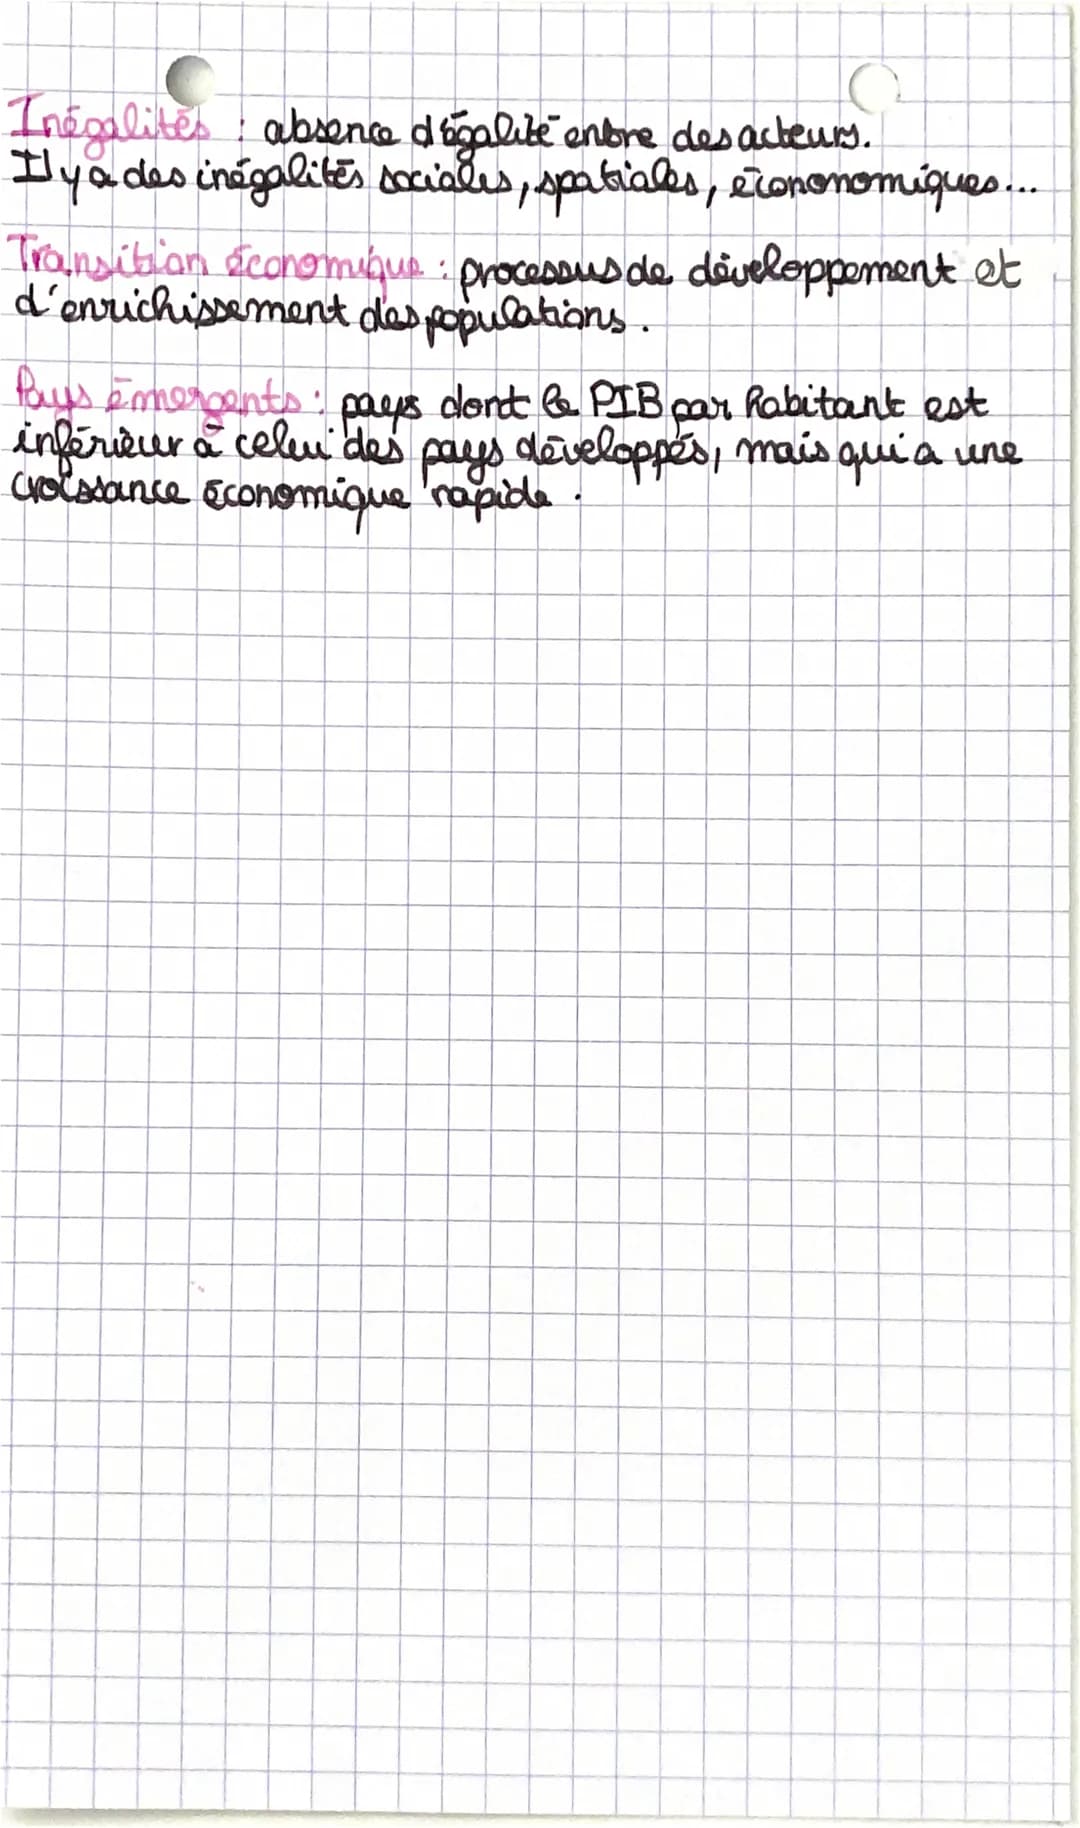 Inégalités : absence d'égalité entre des acteurs.
Il y a des inégalités sociales, spatiales, éconoomiques...
Transition économique : processus de développement et
d'enrichissement des populations.
Pays émergents : pays dont le PIB par habitant est
inférieur à celui des pays développés, mais qui a une
croissance économique rapide.